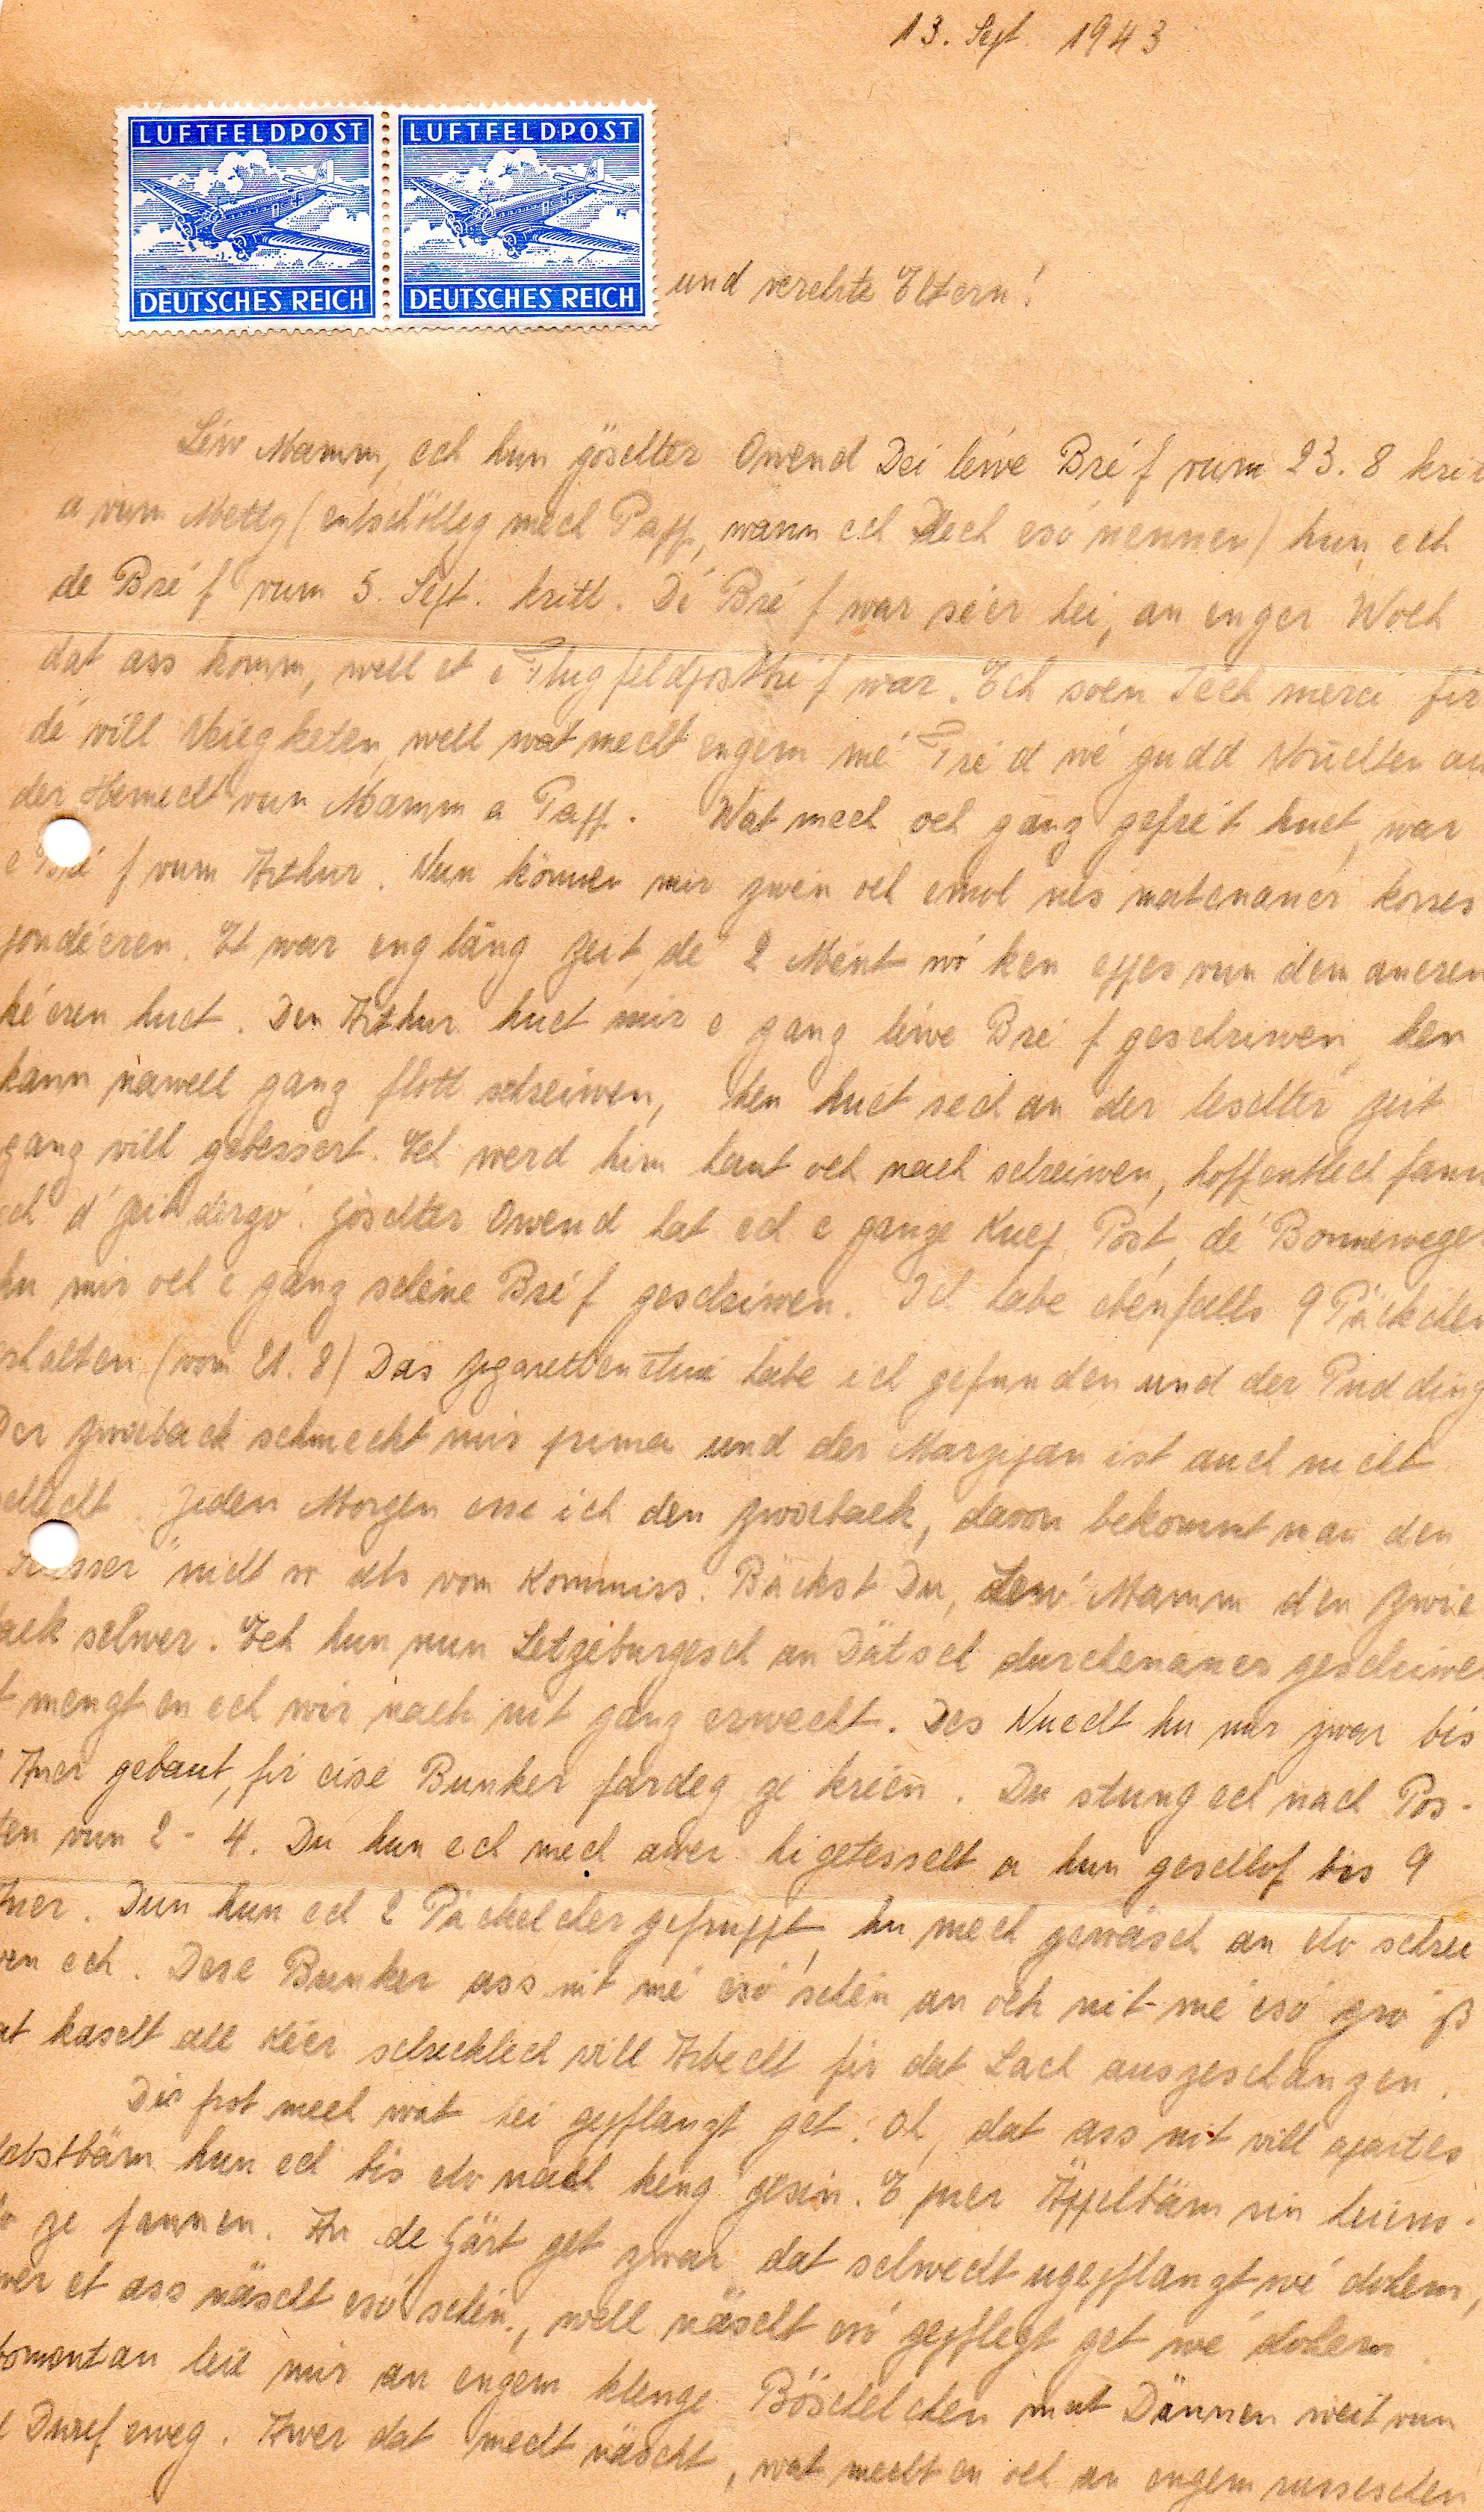 13. Sept. 1943
LUFTFELDPOST LUFTFELDPOST
DEUTSCHES REICH DEUTSCHES REICH
und verehrte Eltern!
Léiw Mamm, ech hun göschter Owend Déi léiwe Bréf vum 23. 8 krit
a vum Metty (entschölleg mech Papp, wann ech Dech esó nennen) hun ech
de Bréf vum 5. Sept. kritt. Dé Bréf war séier hei, an enger Woch
dat ass komm, well et e Flugfeldpostbréf war. Ech soen Iech merci fir
dé vill Neiegketen, well wat mecht engem mé Fréd wé gudd Noüchten aus
der Hemecht vun Mamm a Papp. Wat mech och ganz gefret huet, war
e Bréf vum Arthur. Nun können mir zwén och emol nés matenaner korres
pondéeren. Et war eng läng Zeit, dé 2 Mént wó ken eppes vun dem aneren
héeren huet. Den Arthur huet mir e ganz léiwe Bréf geschriwen, hen
kann nawell ganz flott schreiwen, hen huet sech an der leschter Zeit
ganz vill gebessert. Ech werd him haut och nach schreiwen, hoffentlech fannen
ech d'Zeit derzó. Göschter Owend hat ech e ganze Kuep Post, dé Bonneweger
hu mir och e ganz schéine Bréf geschriwen. Ich habe ebenfalls 9 Päckchen
erhalten (vom 21. 8) Das Zigarettenetui habe ich gefunden und der Pudding
Der Zwieback schmeckt mir prima und der Marzipan ist auch nicht
schlecht. Jeden Morgen esse ich den Zwieback, davon bekommt man den
nicht so als vom Kommiss. Bäckst Du, Léiw Mamm den Zwie
back selwer. Ech hun nun Letzeburgesch an Dätsch durchenaner geschriwen
t mengt en ech wir nach nit ganz erwecht. Des Nuecht hu mir zwar bis
Auer gebaut, fir eise Bunker fardeg ze kréien. Du stung ech nach Pos-
ten vun 2 - 4. Du hun ech mech awer higetesselt a hun geschlof bis 9
Auer. Dun hun ech 2 Päckelcher gefruppt, hu mech gewäsch an elo schrei
wen ech. Dese Bunker ass nit mé esó schén an och nit mé esó gróß
at kascht all Kéer schrecklech vill Arbecht fir dat Lach auszeschanzen.
Dir frot mech wat hei geplanzt get. Oh, dat ass nit vill apartes
Obstbäm hun ech bis elo nach keng gesin. E puer Äppelbäm sin heiens-
do ze fannen. An de Gärt get zwar dat selwecht ugeplanzt wé doheem,
awer et ass näscht esó schén, well näscht esó gepflegt get wé doheem.
Momentan leie mir an engem klenge Böschelchen mat Dännen weit vun
e Duref eweg. Awer dat mecht näscht, wat mecht en och an engem russeschen